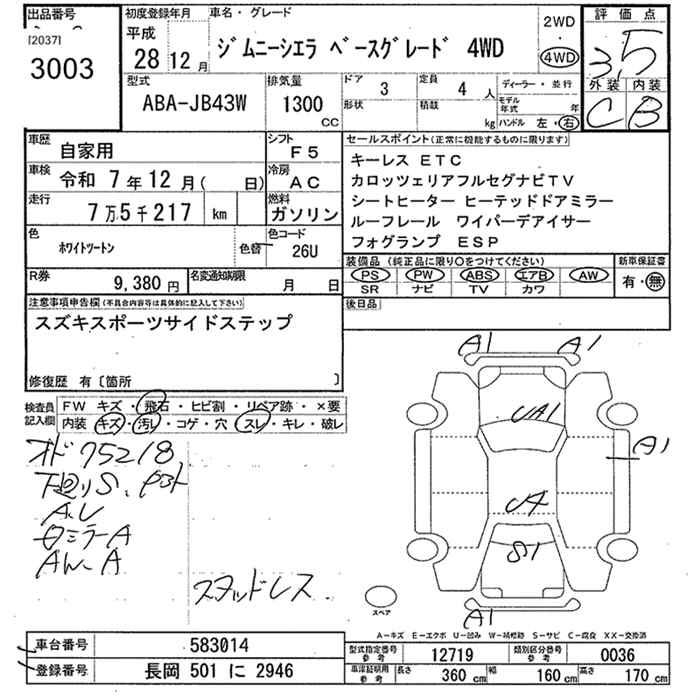 出品番号
[2037]
3003
初度登録年月
平成
28 12 月
車名・グレード
ジムニーシエラ ベースグレード 4WD
2WD
・
4WD
評価点
3.5
外装 内装
C B
型式
ABA-JB43W
排気量
1300
CC
ドア 3
形状
定員 4 人
積載 kg
ディーラー・並行
モデル年式 年
ハンドル 左・右
車歴
自家用
シフト
F5
車検 令和 7年12月( 日)
冷房
AC
走行
7万5千217 km
燃料
ガソリン
色
ホワイトツートン
色替
色コード
26U
R券 9,380 円
名変通知期限 月 日
セールスポイント(正常に機能するものに限ります)
キーレス ETC
カロッツェリアフルセグナビTV
シートヒーター ヒーテッドドアミラー
ルーフレール ワイパーデアイサー
フォグランプ ESP
装備品 (純正品に限り○をつけてください)
PS PW ABS エアB AW
SR ナビ TV カワ
新車保証書
有・無
後日品
注意事項申告欄(不具合内容等は具体的に記入して下さい)
スズキスポーツサイドステップ
修復歴 有〔箇所 〕
検査員記入欄
FW キズ・飛石・ヒビ割・リペア跡・×要
内装 キズ・汚レ・コゲ・穴・スレ・キレ・破レ
オド 75218
下廻りS、
ミラーA
AW A
スタッドレス
A1 A1
UA1
A1
UA
S1
A1
スペア
A－キズ E－エクボ U－凹み W－補修跡 S－サビ C－腐食 XX－交換済
車台番号 583014
登録番号 長岡 501 に 2946
型式指定番号参考 12719 類別区分番号参考 0036
車庫証明用参考 長さ 360 cm 幅 160 cm 高さ 170 cm